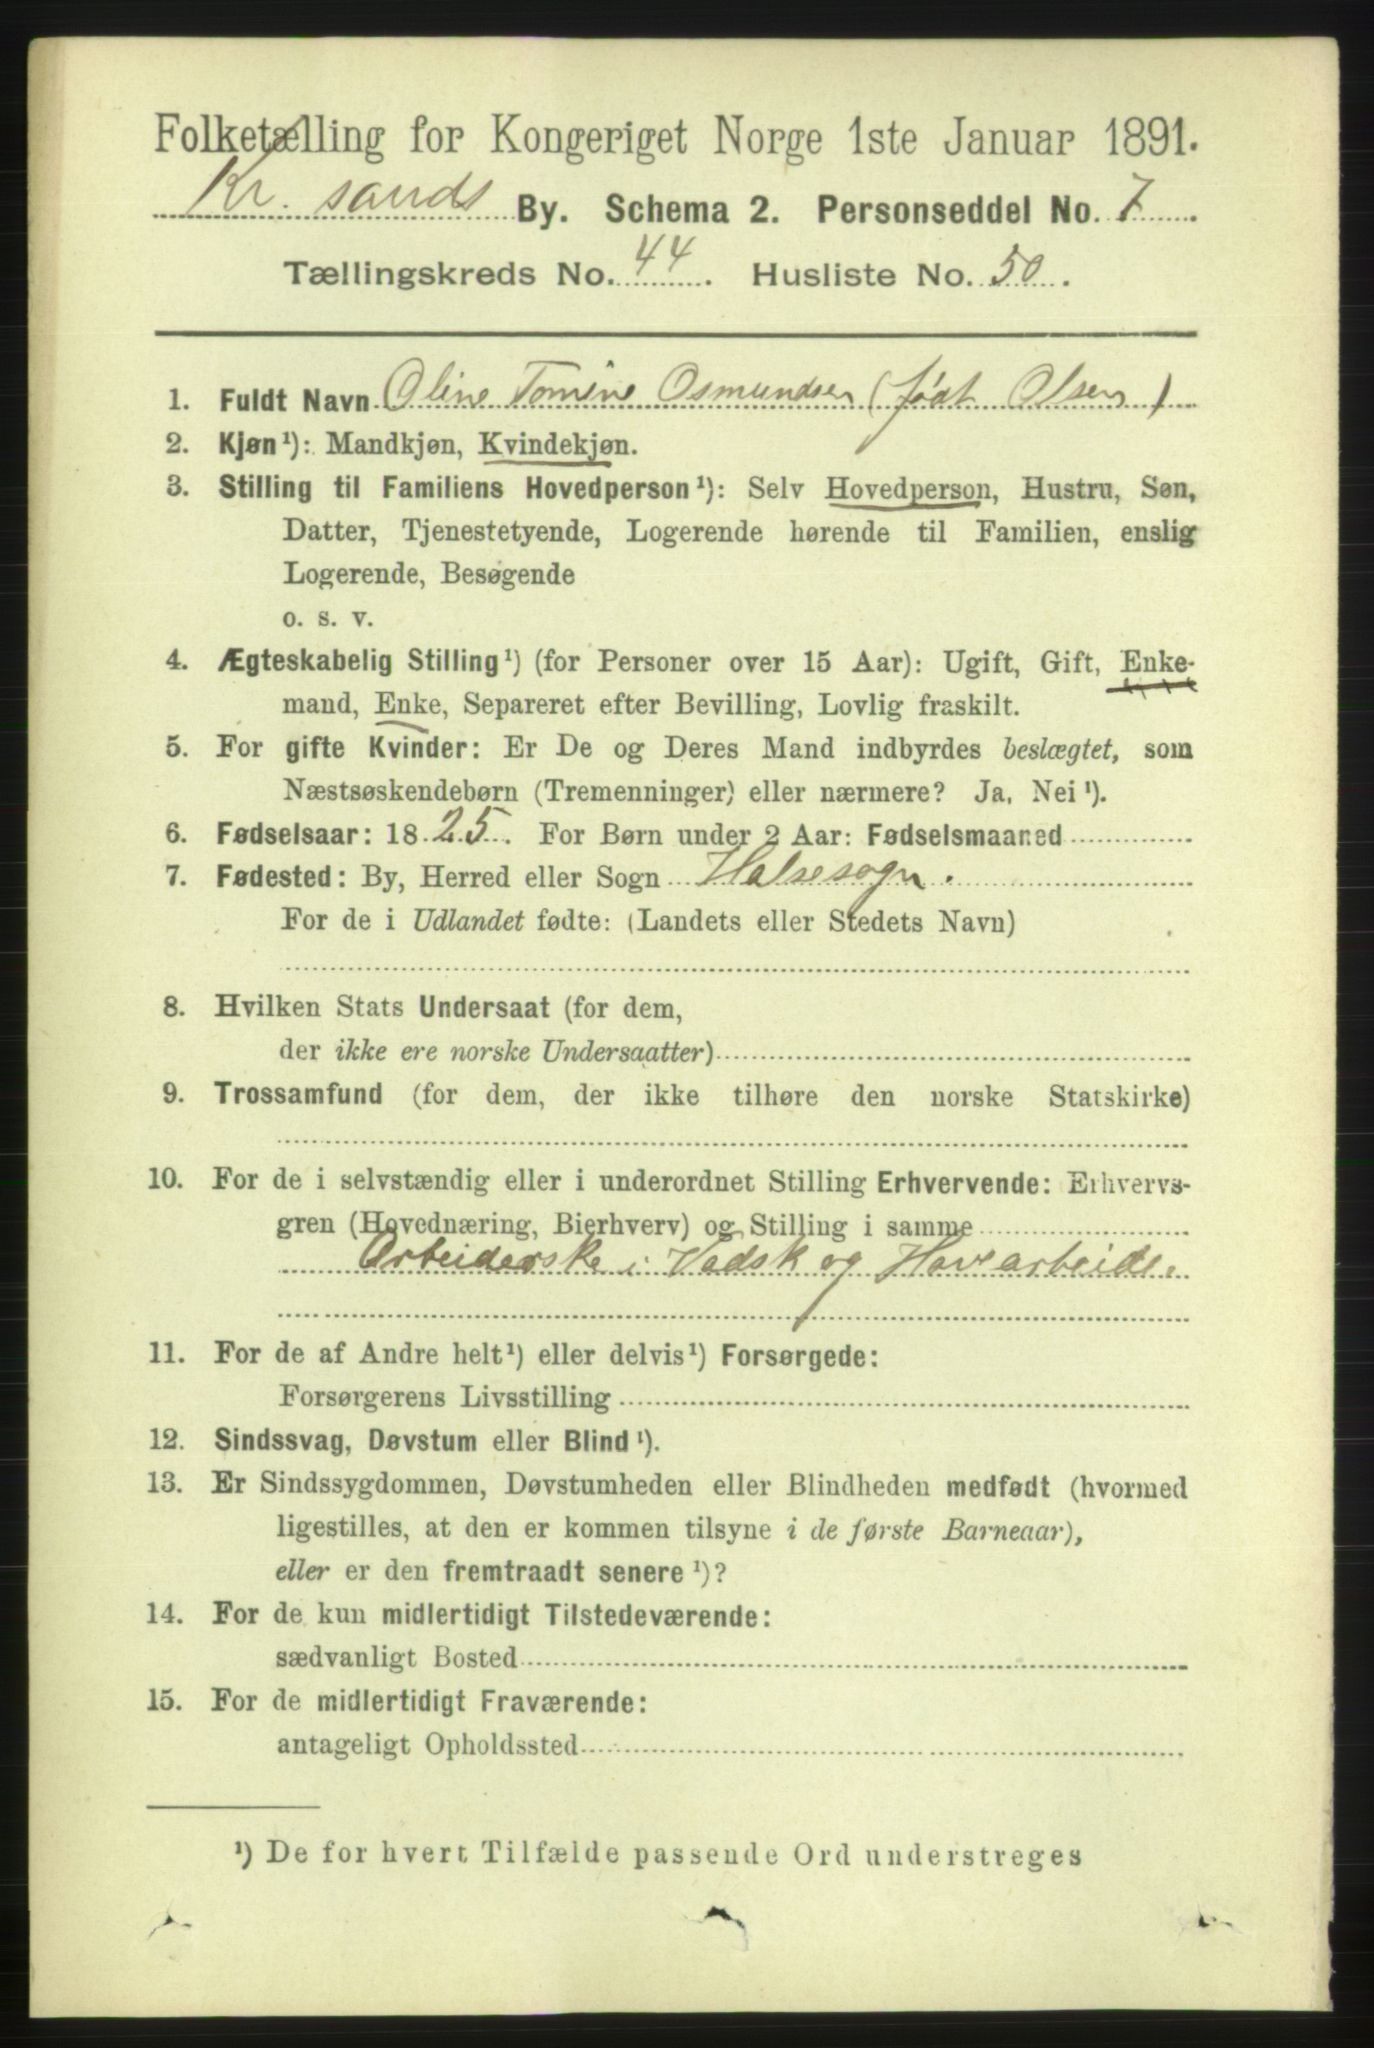 Folketælling for Kongeriget Norge 1ste Januar 1891.
Kr. sands By. Schema 2. Personseddel No. 7
Tællingskreds No. 44. Husliste No. 50.
1. Fuldt Navn Oline Tomine Osmundsen (født Olsen)
2. Kjøn¹): Mandkjøn, Kvindekjøn.
3. Stilling til Familiens Hovedperson¹): Selv Hovedperson, Hustru, Søn,
Datter, Tjenestetyende, Logerende hørende til Familien, enslig
Logerende, Besøgende
o. s. v.
4. Ægteskabelig Stilling¹) (for Personer over 15 Aar): Ugift, Gift, Enke-
mand, Enke, Separeret efter Bevilling, Lovlig fraskilt.
5. For gifte Kvinder: Er De og Deres Mand indbyrdes beslægtet, som
Næstsøskendebørn (Tremenninger) eller nærmere? Ja, Nei¹).
6. Fødselsaar: 1825. For Børn under 2 Aar: Fødselsmaaned
7. Fødested: By, Herred eller Sogn Halsesogn.
For de i Udlandet fødte: (Landets eller Stedets Navn)
8. Hvilken Stats Undersaat (for dem,
der ikke ere norske Undersaatter)
9. Trossamfund (for dem, der ikke tilhøre den norske Statskirke)
10. For de i selvstændig eller i underordnet Stilling Erhvervende: Erhvervs-
gren (Hovednæring, Bierhverv) og Stilling i samme
Arbeiderske i Vadsk og Havearbeide.
11. For de af Andre helt¹) eller delvis¹) Forsørgede:
Forsørgerens Livsstilling
12. Sindssvag, Døvstum eller Blind¹).
13. Er Sindssygdommen, Døvstumheden eller Blindheden medfødt (hvormed
ligestilles, at den er kommen tilsyne i de første Barneaar),
eller er den fremtraadt senere¹)?
14. For de kun midlertidigt Tilstedeværende:
sædvanligt Bosted
15. For de midlertidigt Fraværende:
antageligt Opholdssted
¹) De for hvert Tilfælde passende Ord understreges